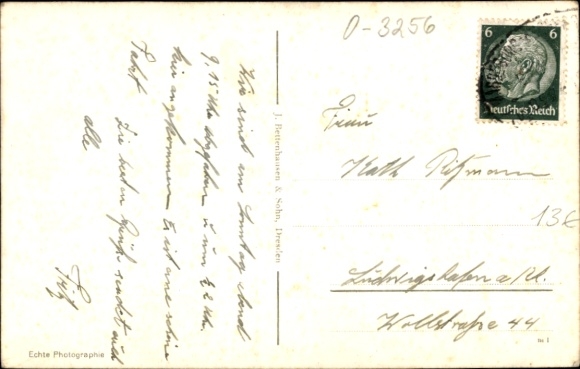 O-3256
6 6
Deutsches Reich
Wir sind am Sonntag Abend
9.15 Uhr u um ½ 2 Uhr
hier angekommen Es ist eine schöne
Fahrt
Die besten Grüße sendet euch
alle
Fritz
J. Bettenhausen & Sohn, Dresden
Frau
Kath Rißmann
13€
Ludwigshafen a/Rh.
Wollstraße 44
Echte Photographie
to 1